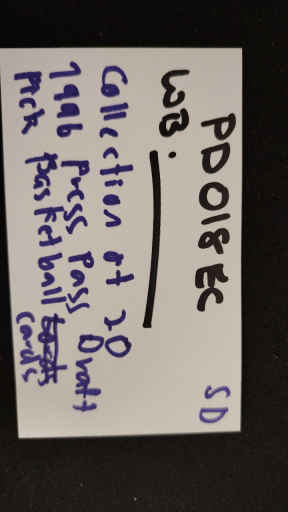 PD018EC SD
WB.
Collection of 20
1996 Press Pass Draft
Pick Basketball
cards